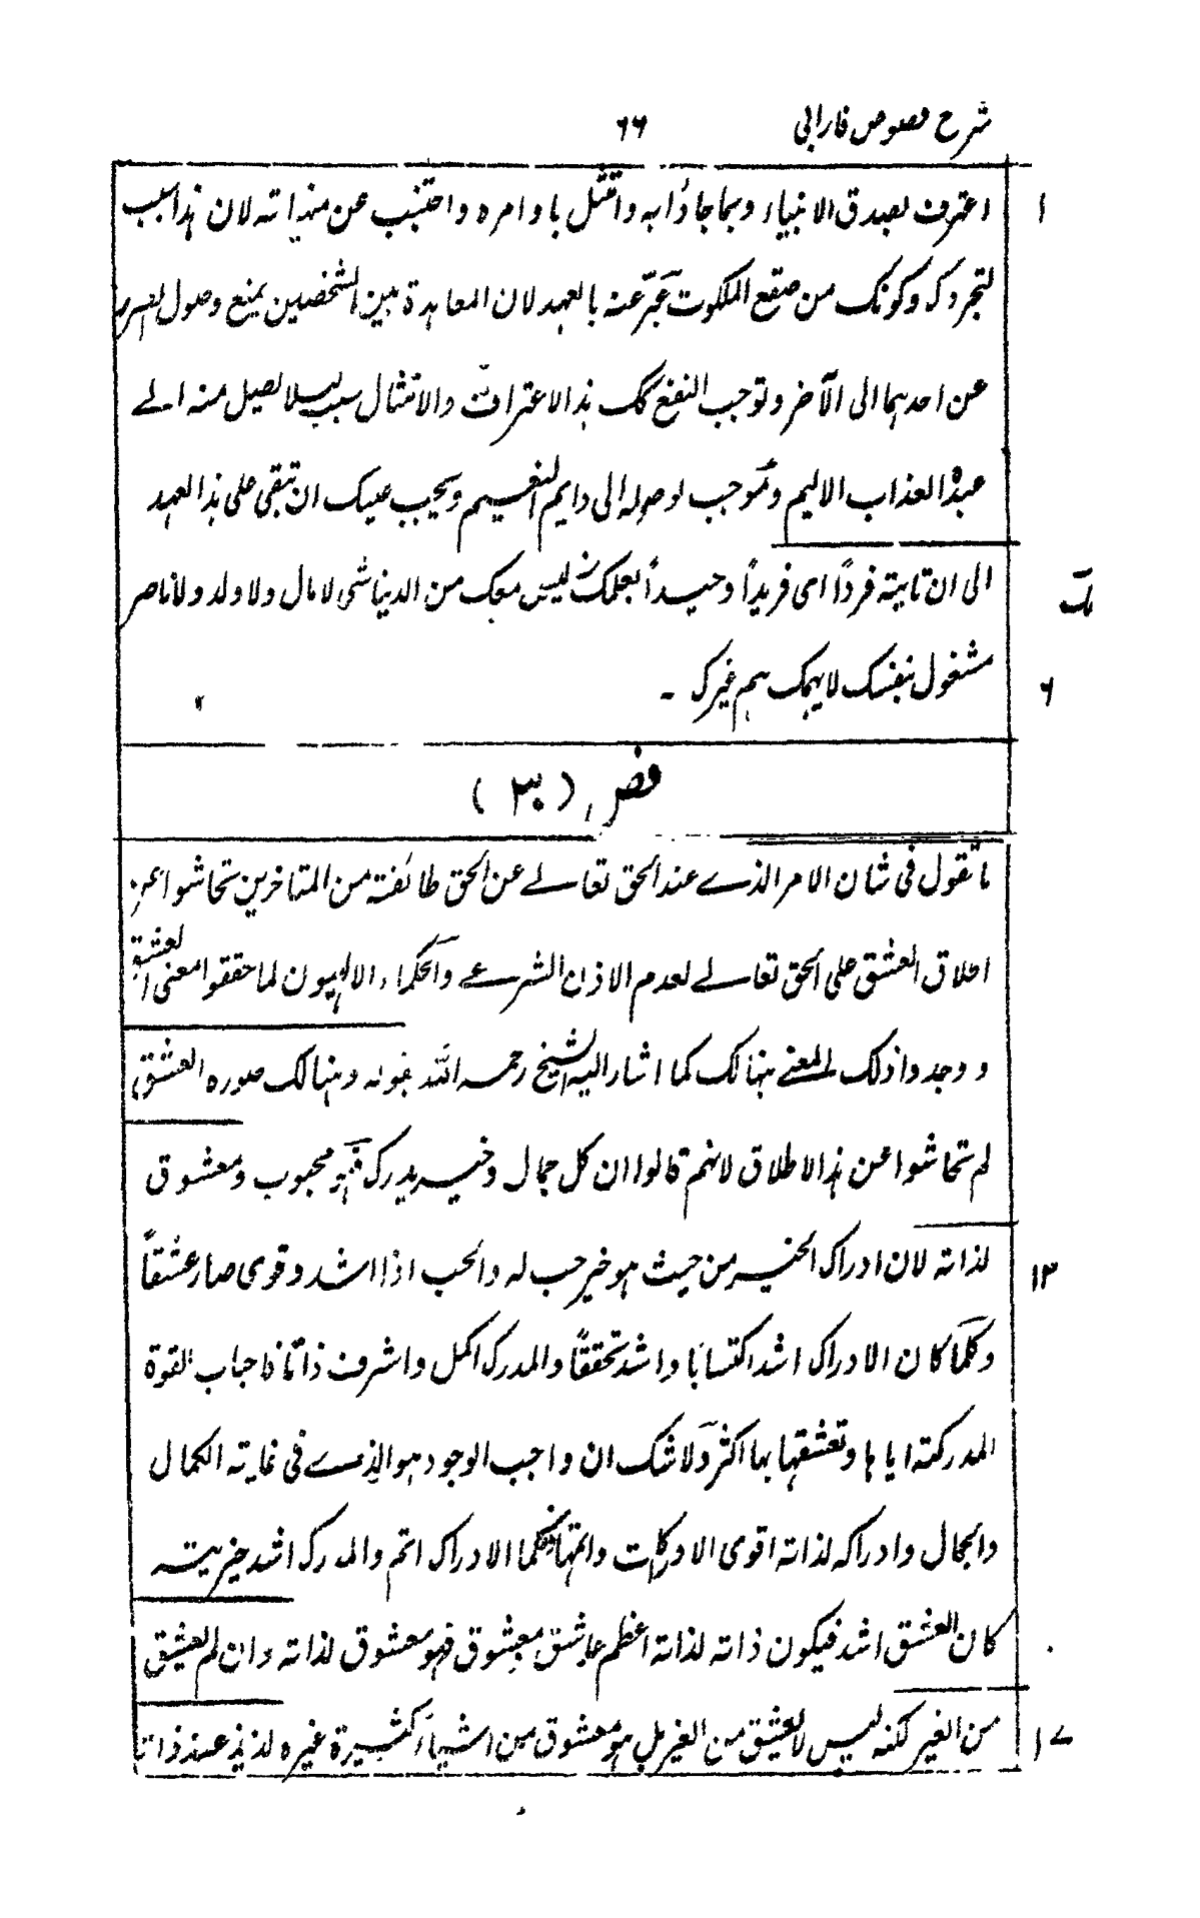 شرح فصوص فارابی ٦٦
اعترف بصدق الانبیاء وبما جاؤا به وامتثل باوامره واجتنب عن منهیاته لان هذا سبب ١
لتجردک وکونک من صقع الملکوت عبّر عنه بالعهد لان المعاهدة بین الشخصین یمنع وصول الضرر
عن احدهما الی الآخر وتوجب النفع کک هذا الاعتراف والامتثال سبب لیلا یصل منه الے
عبده العذاب الالیم وموجب لوصوله الی دایم النعیم ویجب علیک ان تبقی علی هذا العهد
الی ان تاتیه فرداً ای فریداً وحیداً بعملک لیس معک من الدنیا شی لا مال ولا ولد ولا ناصر
مشغول بنفسک لا یهمک هم غیرک - ٦
فص (٣٠)
ما تقول فی شان الامر الذے عند الحق تعالے عن الحق طائفة من المتاخرین تحاشوا عن
اطلاق العشق علی الحق تعالے لعدم الاذن الشرعے والحکماء الالهیون لما حققوا معنی العشق
ووجدوا ذلک المعنے هنالک کما اشار الیه الشیخ رحمه الله بقوله وهنالک صوره العشق
لم تحاشوا عن هذا الاطلاق لانهم قالوا ان کل جمال وخیر یدرک فهو محبوب ومعشوق
لذاته لان ادراک الخیر من حیث هو خیر حب له والحب اذا اشد وقوی صار عشقاً ١٣
وکلما کان الادراک اشد اکتسابا واشد تحققاً والمدرک اکمل واشرف ذاتا فاحباب القوة
المدرکة ایاها وتعشقها بها اکثر ولا شک ان واجب الوجود هو الذے فی غایة الکمال
والجمال وادراکه لذاته اقوی الادراکات واتمها فکلما الادراک اتم والمدرک اشد خیریته
کان العشق اشد فیکون ذاته لذاته اعظم عاشق معشوق فهو معشوق لذاته وان لم یعشق
من الغیر لکنه لیس لا یعشق من الغیر بل هو معشوق من اشیاء کثیرة غیره لذیذ عند ذاته ١٧